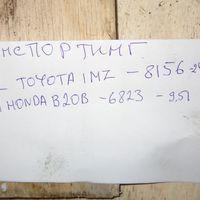 НСПОРТИНГ
TOYOTA 1MZ – 8156 -2
HONDA B20B – 6823 – 9,5